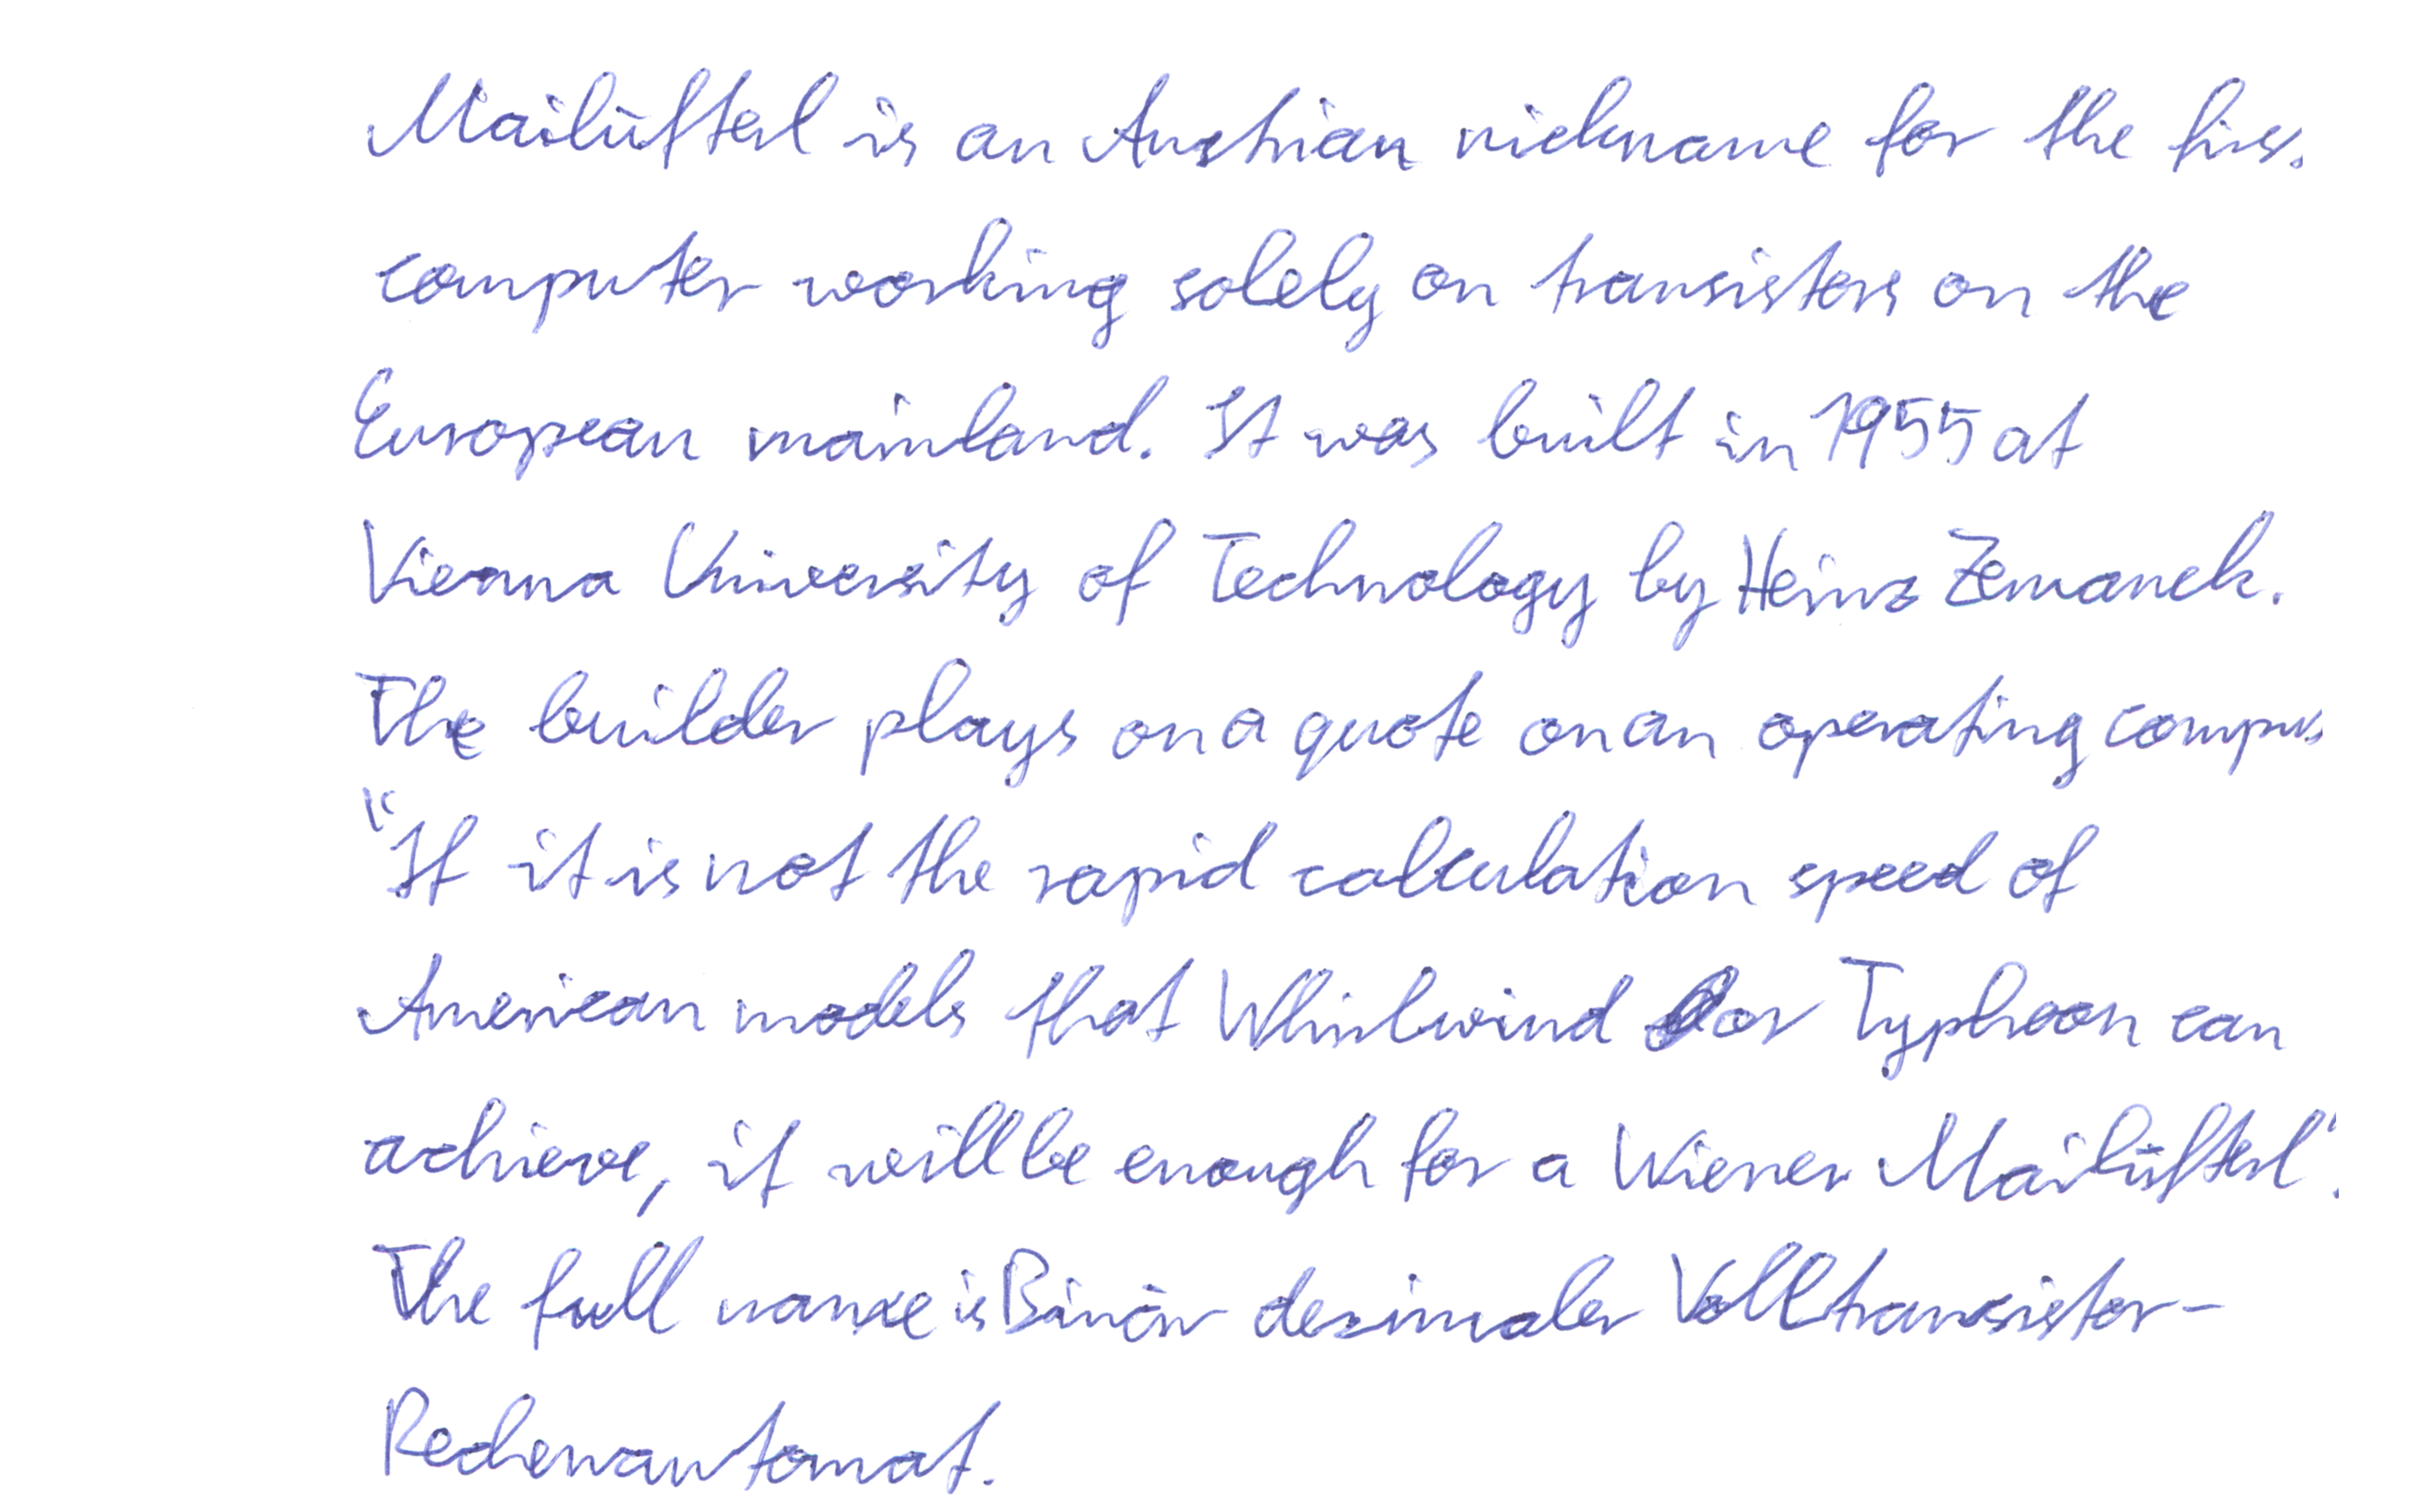 Mailüfterl is an Austrian nickname for the firs
computer working solely on transistors on the
European mainland. It was built in 1955 at
Vienna University of Technology by Heinz Zemanek.
The builder plays on a quote on an operating compu
"If it is not the rapid calculation speed of
American models that Whirlwind or Typhoon can
achieve, it will be enough for a Wiener Mailüfterl".
The full name is Binär dezimaler Volltransistor-
Rechenautomat.